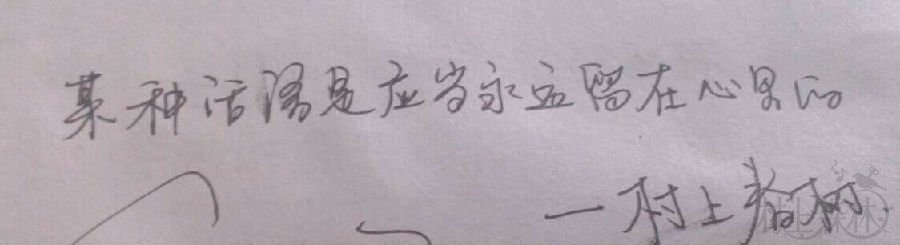 某种话语是应当永远留在心里的
—村上春树